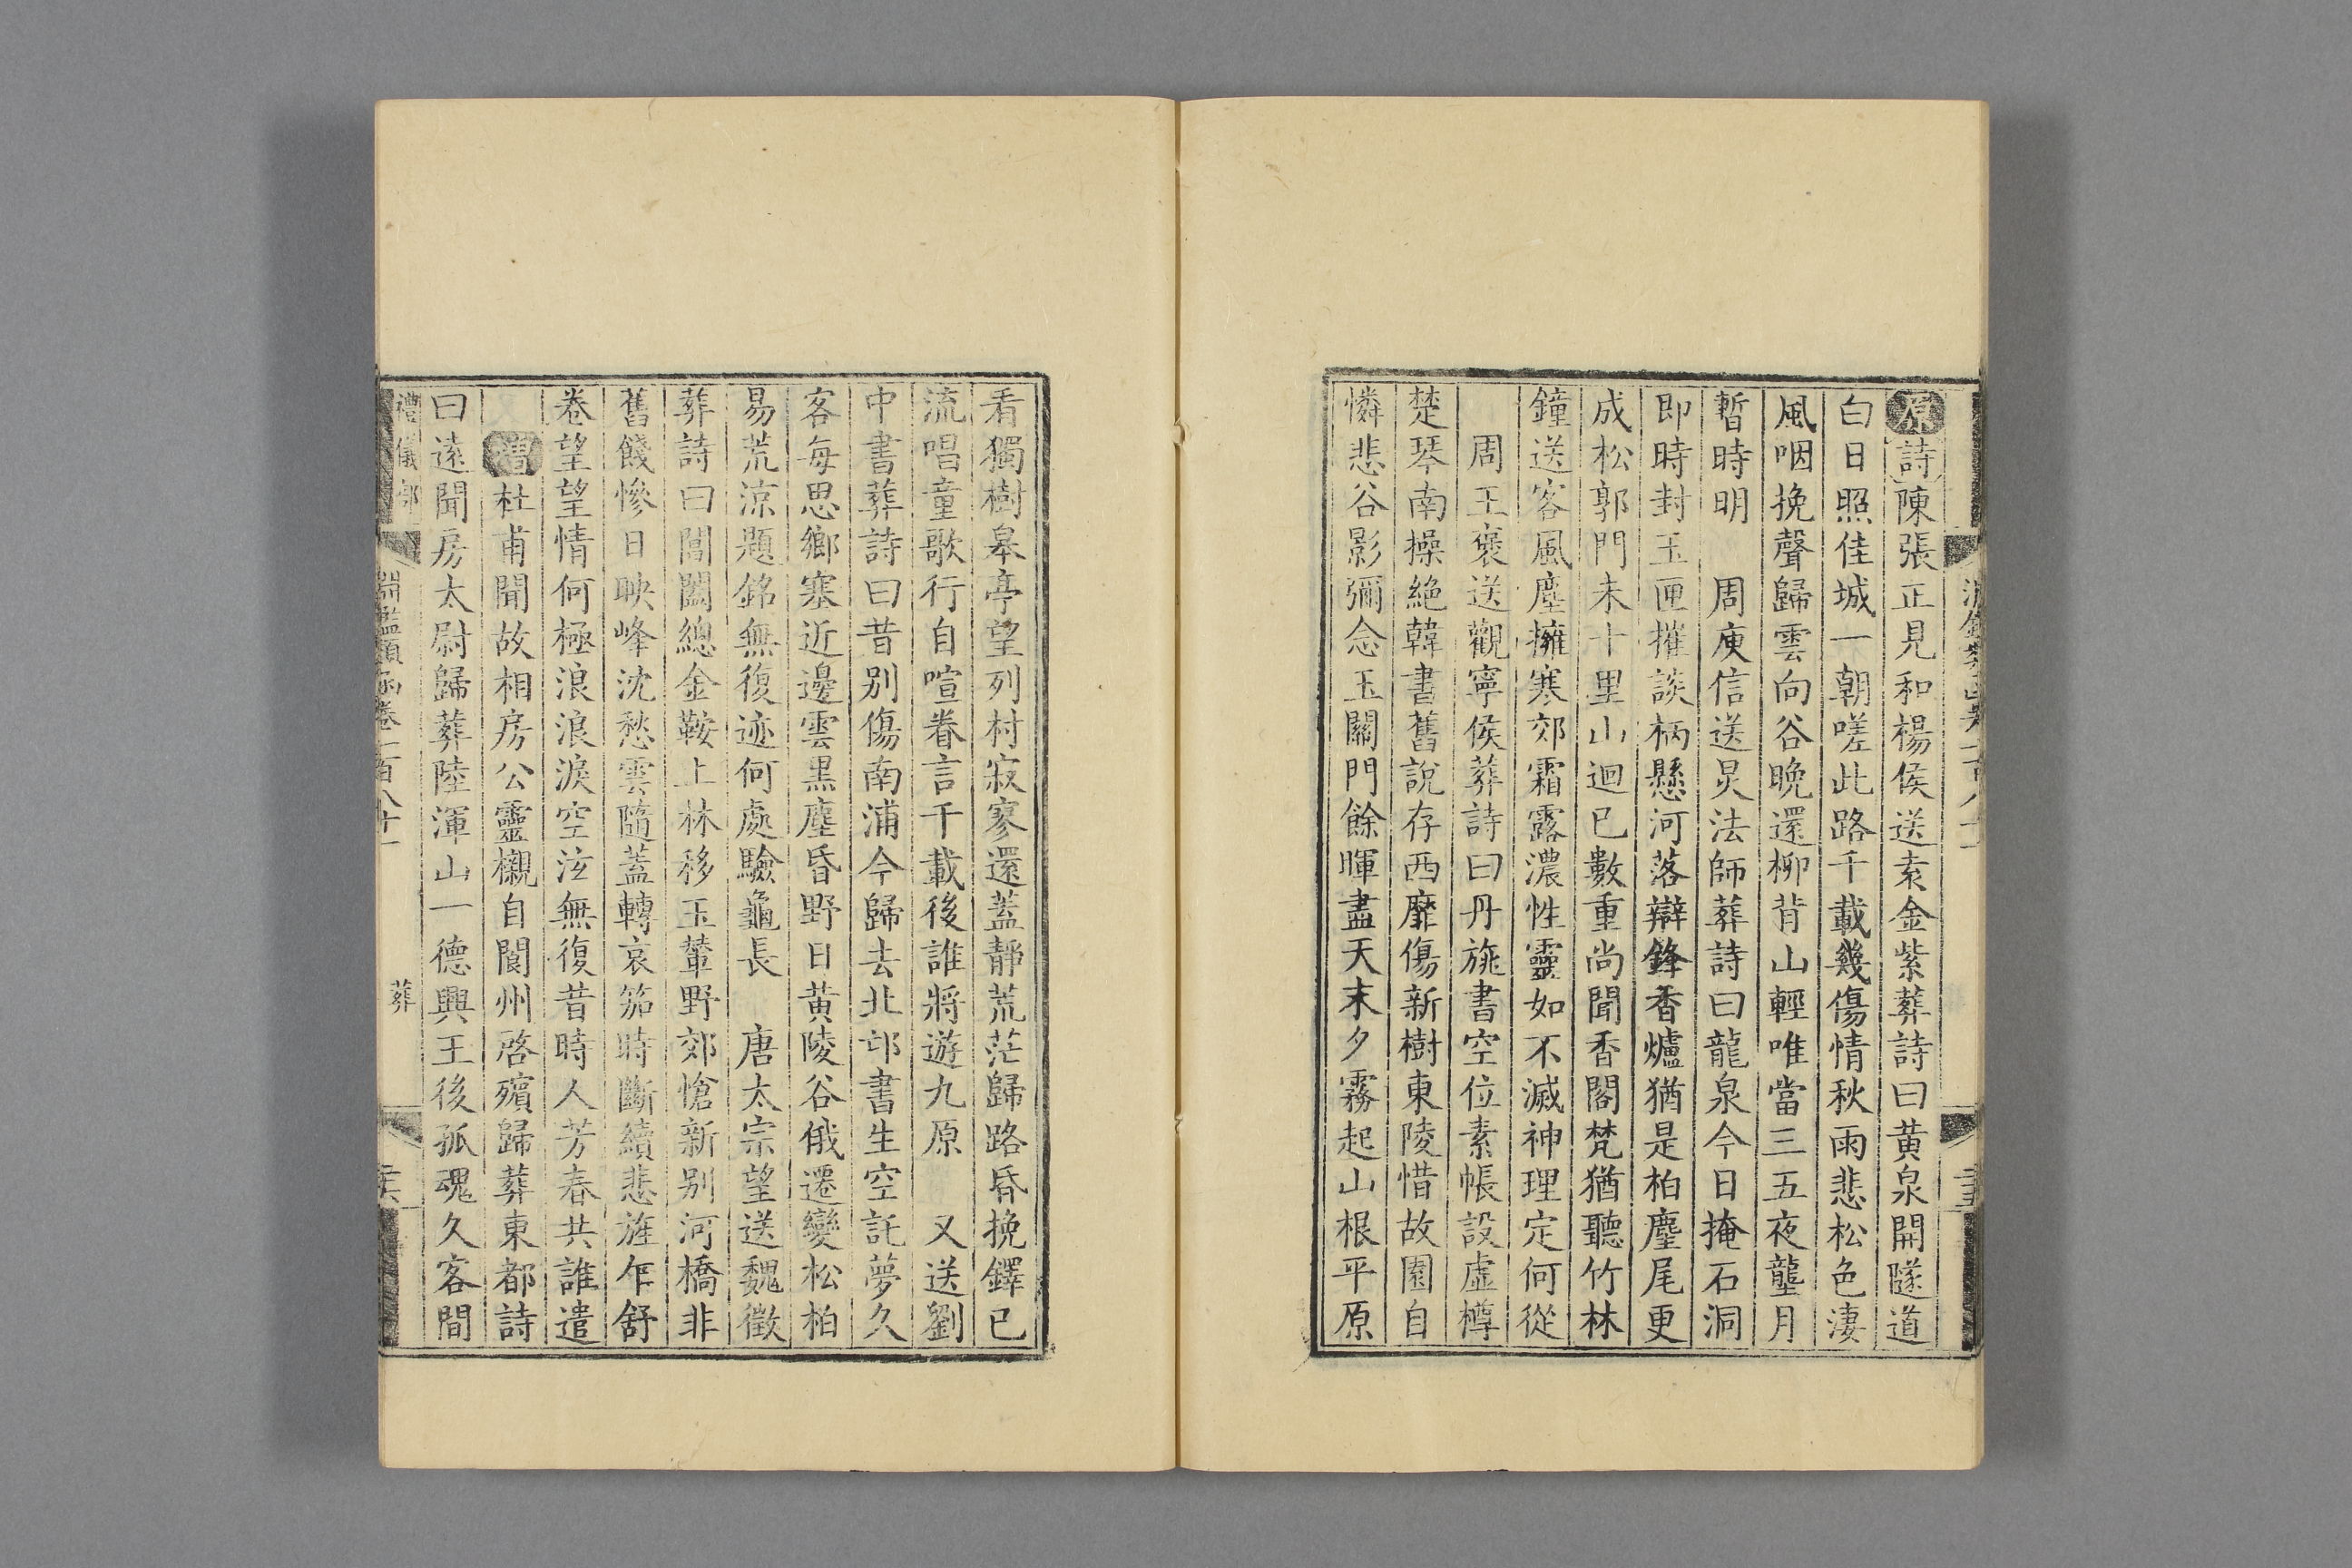 原詩陳張正見和楊侯送袁金紫葬詩曰黃泉開隧道
白日照佳城一朝嗟此路千載幾傷情秋雨悲松色淒
風咽挽聲歸雲向谷晚還柳背山輕唯當三五夜壟月
暫時明　周庾信送炅法師葬詩曰龍泉今日掩石洞
即時封玉匣摧談柄懸河落辯鋒香爐猶是柏塵尾更
成松郭門未十里山迴已數重尚聞香閣梵猶聽竹林
鐘送客風塵擁寒郊霜露濃性靈如不滅神理定何從
周王褒送觀寧侯葬詩曰丹旐書空位素帳設虛樽
楚琴南操絕韓書舊說存西靡傷新樹東陵惜故園自
憐悲谷影彌念玉關門餘暉盡天末夕霧起山根平原
看獨樹皋亭望列村寂寥還蓋靜荒茫歸路昏挽鐸已
流唱童歌行自喧眷言千載後誰將遊九原　又送劉
中書葬詩曰昔別傷南浦今歸去北邙書生空託夢久
客每思鄉塞近邊雲黑塵昏野日黃陵谷俄遷變松柏
易荒涼題銘無復迹何處驗龜長　唐太宗望送魏徵
葬詩曰閶闔總金鞍上林移玉輦野郊愴新別河橋非
舊餞慘日映峰沈愁雲隨蓋轉哀笳時斷續悲旌乍舒
卷望望情何極浪浪淚空泫無復昔時人芳春共誰遣
增杜甫聞故相房公靈櫬自閬州啓殯歸葬東都詩
曰遠聞房太尉歸葬陸渾山一德興王後孤魂久客間
禮儀部　淵鑑類函卷一百八十一　葬